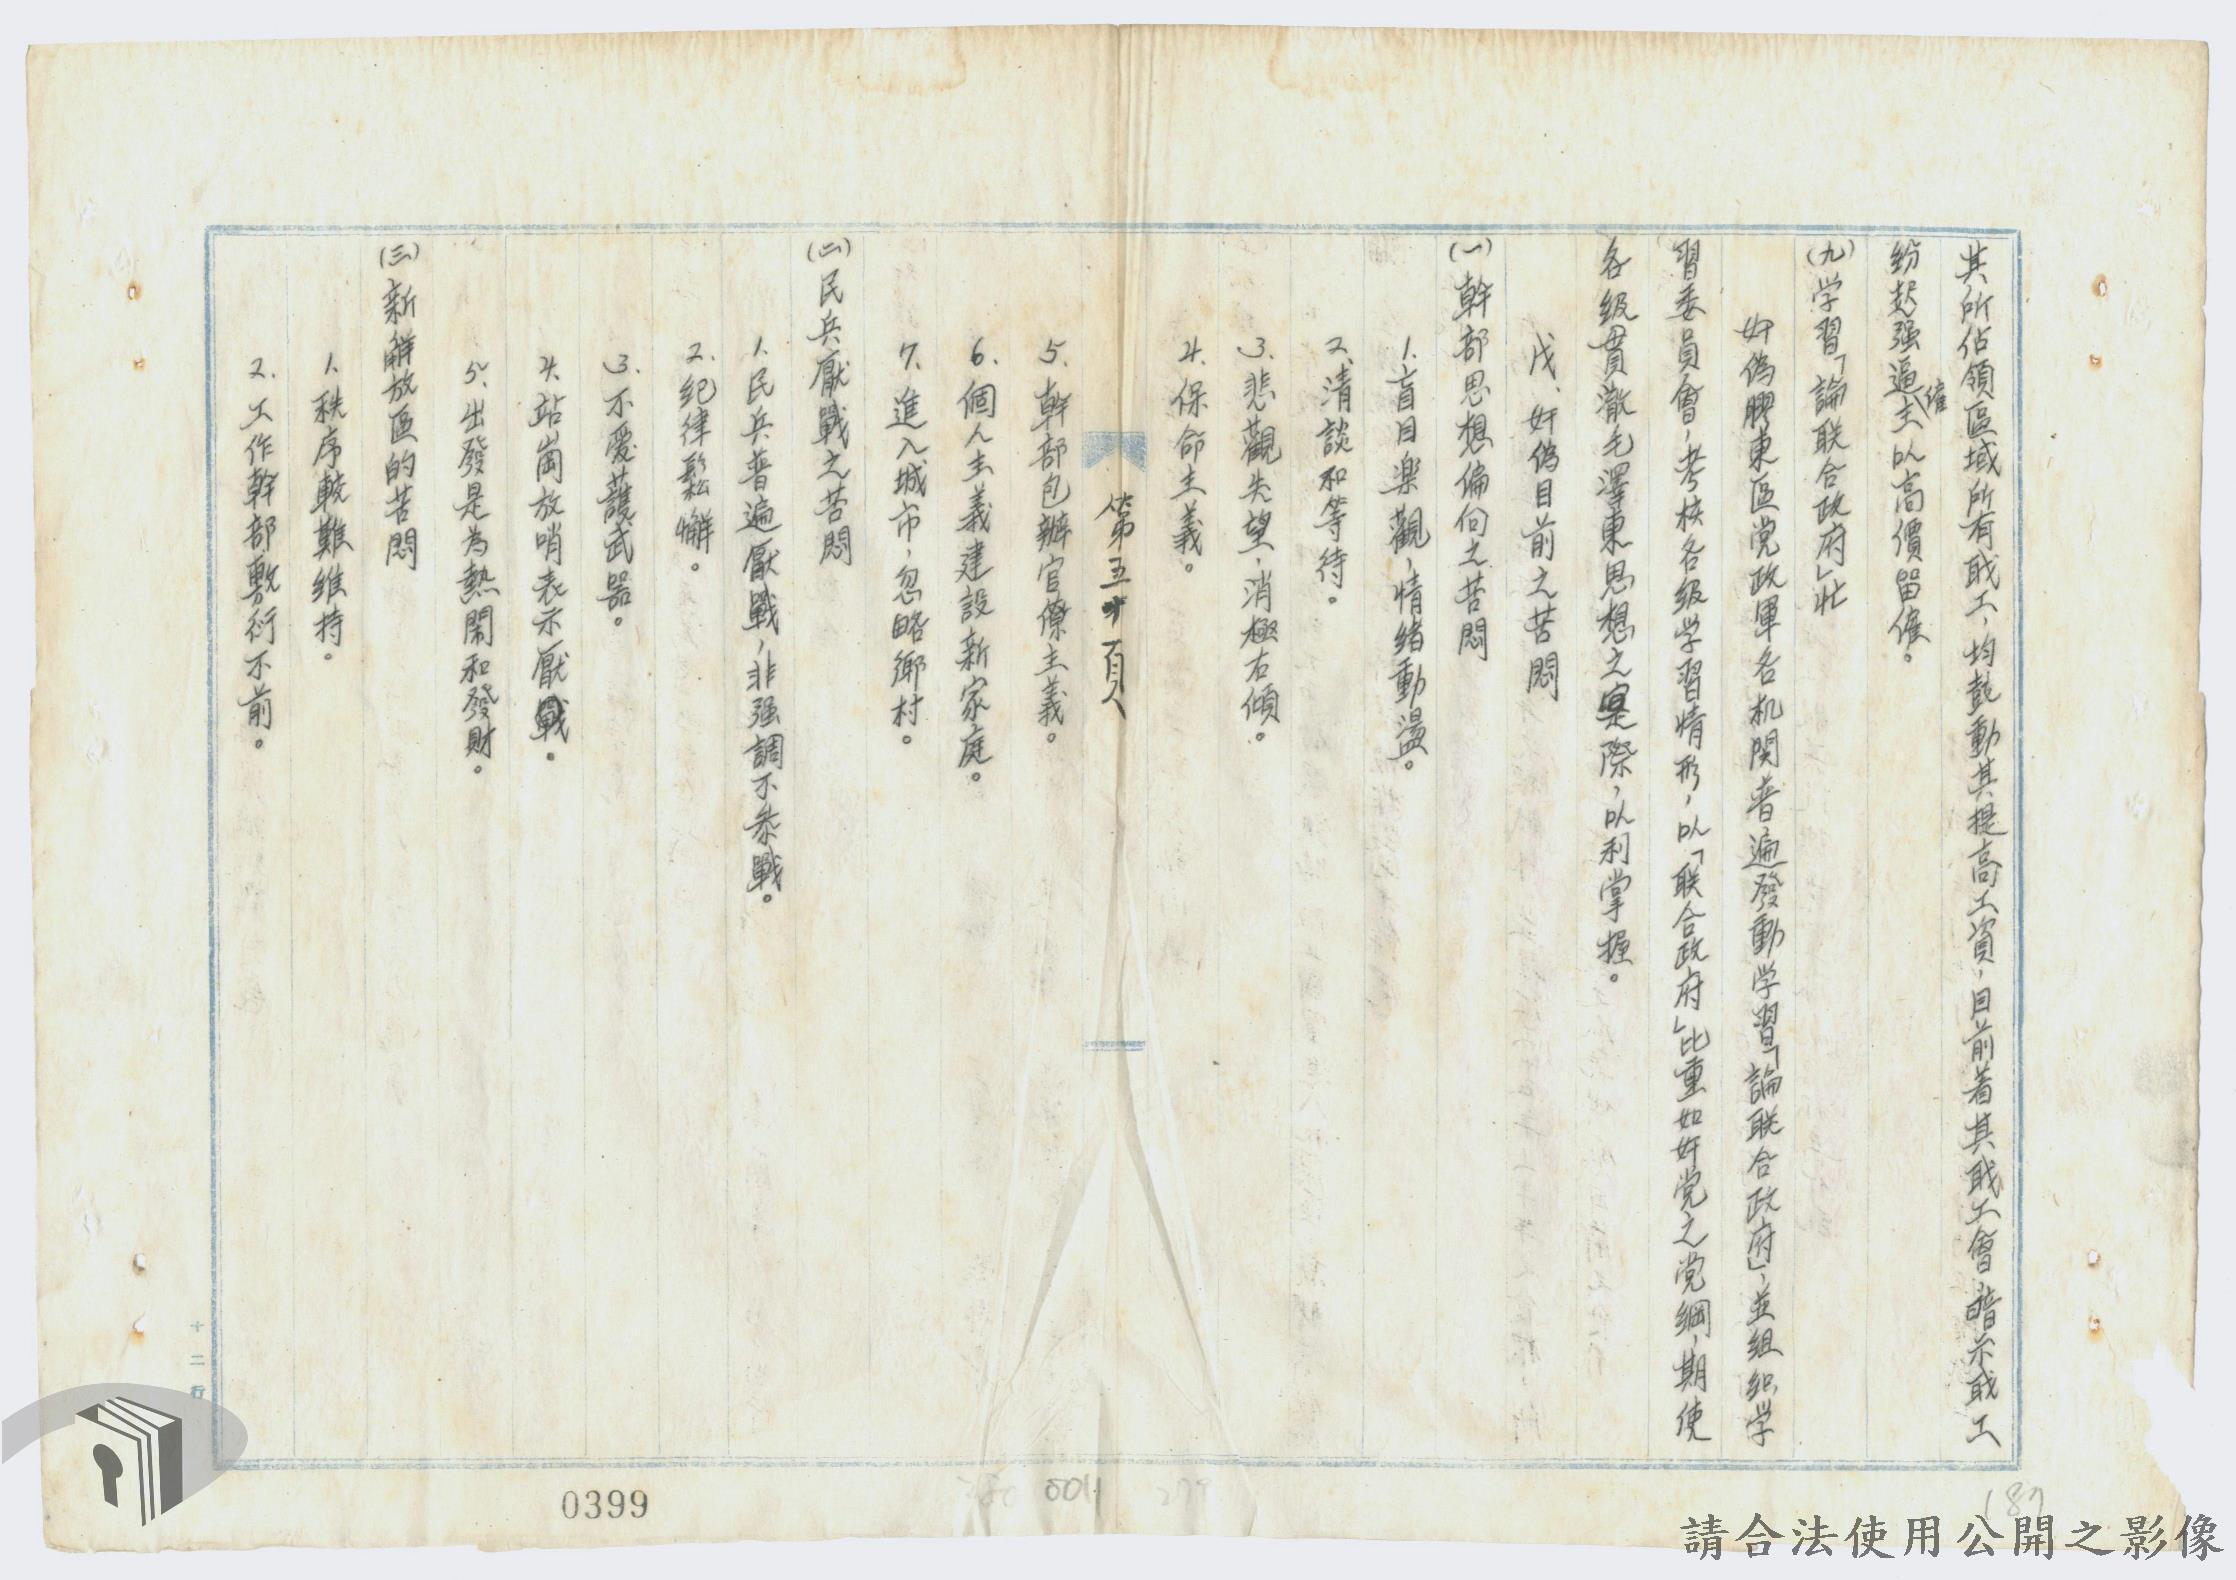 其所佔領區域所有職工，均鼓動其提高工資，目前着其職工會暗示職工
紛起强逼僱主以高價留僱。
(九)学習「論联合政府」
奸偽膠東區党政軍各机関普遍發動学習「論联合政府」，並組織学
習委員會，考核各級学習情形，以「联合政府」比重如奸党之党綱，期使
各級貫澈毛澤東思想之実際，以利掌握。
戊、奸偽目前之苦悶
(一)幹部思想偏向之苦悶
1.盲目樂觀，情緒動盪。
2.清談和等待。
3.悲觀失望，消極右傾。
4.保命主義。
第五十頁
5.幹部包辦官僚主義。
6.個人主義建設新家庭。
7.進入城市，忽略鄉村。
(二)民兵厭戰之苦悶
1.民兵普遍厭戰，非强調不參戰。
2.紀律鬆懈。
3.不愛護武器。
4.站崗放哨表示厭戰。
5.出發是為熱鬧和發財。
(三)新解放區的苦悶
1.秩序較難維持。
2.工作幹部敷衍不前。
十二行
0399
0011
279
187
請合法使用公開之影像